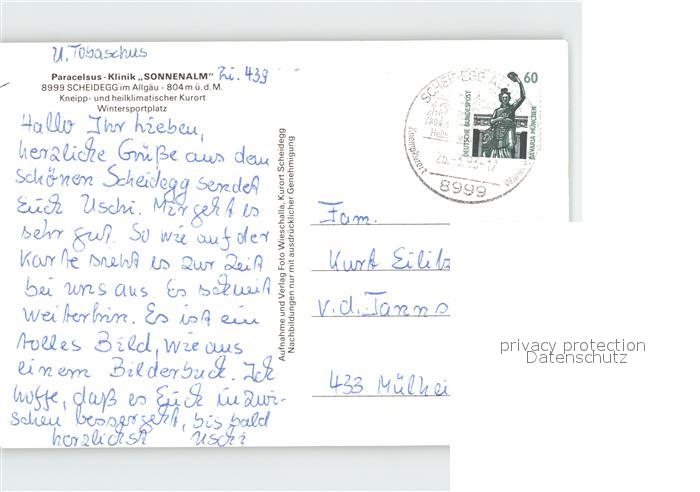 U. Tobaschus
Paracelsus-Klinik „SONNENALM“ Zi. 439
8999 SCHEIDEGG im Allgäu - 804 m ü. d. M.
Kneipp- und heilklimatischer Kurort
Wintersportplatz
Hallo Ihr Lieben,
herzliche Grüße aus dem
schönen Scheidegg sendet
Euch Uschi. Mir geht es
sehr gut. So wie auf der
Karte sieht es zur Zeit
bei uns aus. Es schneit
weiterhin. Es ist ein
tolles Bild, wie aus
einem Bilderbuch. Ich
hoffe, daß es Euch inzwi-
schen besser geht, bis bald
herzlichst Uschi
Aufnahme und Verlag Foto Wieschalla, Kurort Scheidegg
Nachbildungen nur mit ausdrücklicher Genehmigung
SCHEIDEGG
Kneippkurort
8999
60
DEUTSCHE BUNDESPOST
BAVARIA MÜNCHEN
Fam.
Kurt Eilitz
v.d. Tanns
433 Mülhei
privacy protection
Datenschutz